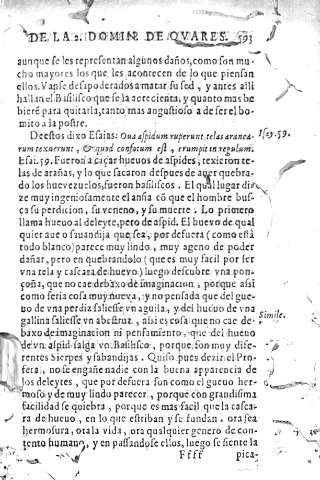 DE LA 2. DOMIN. DE QVARES. 593
aunque se les representan algunos daños, como son mu-
cho mayores los que les acontecen de lo que piensan
ellos. Vanse desapoderados a matar su sed, y antes alli
hallan el Basilisco que se la acrecienta, y quanto mas be
bieré para quitarla, tanto mas angustioso a de ser el bo-
mito a la postre.
De estos dixo Esaias: Oua aspidum ruperunt, telas aranea-
rum texuerunt, & quod confotum est, erumpit in regulum.
Isay. 59.
Esai. 59. Fueron a caçar hueuos de aspides, texieron te-
las de arañas, y lo que sacaron despues de auer quebra-
do los huevezuelos, fueron basiliscos. El qual lugar di-
ze muy ingeniosamente el ansia có que el hombre bus-
ca su perdicion, su veneno, y su muerte. Lo primero
llama hueuo al deleyte, pero de aspid. El huevo de qual
quier aue o sauandija que sea, por defuera (como està
todo blanco) parece muy lindo, muy ageno de poder
dañar, pero en quebrandolo (que es muy facil por ser
vna tela y cascara de huevo) luego descubre vna pon-
çoña, que no cae debaxo de imaginacion, porque assi
como seria cosa muy nueva, y no pensada que del gue-
uo de vna perdiz saliesse vn aguila, y del hueuo de vna
gallina saliesse vn abestruz, assi es cosa que no cae de-
Simile.
baxo de imaginacion ni pensamiento, que del hueuo
de vn aspid salga vn Basilisco, porque son muy dife-
rentes sierpes y sabandijas. Quiso pues dezir el Pro-
feta, no se engañe nadie con la buena apparencia de
los deleytes, que por defuera son como el gueuo her-
moso y de muy lindo parecer, porque con grandisima
facilidad se quiebra, porque es mas facil que la casca-
ra de hueuo, en lo que estriban y se fundan, ora sea
hermosura, ora la vida, ora qualquier genero de con-
tento humano, y en passandose ellos, luego se siente la
Ffff pica-